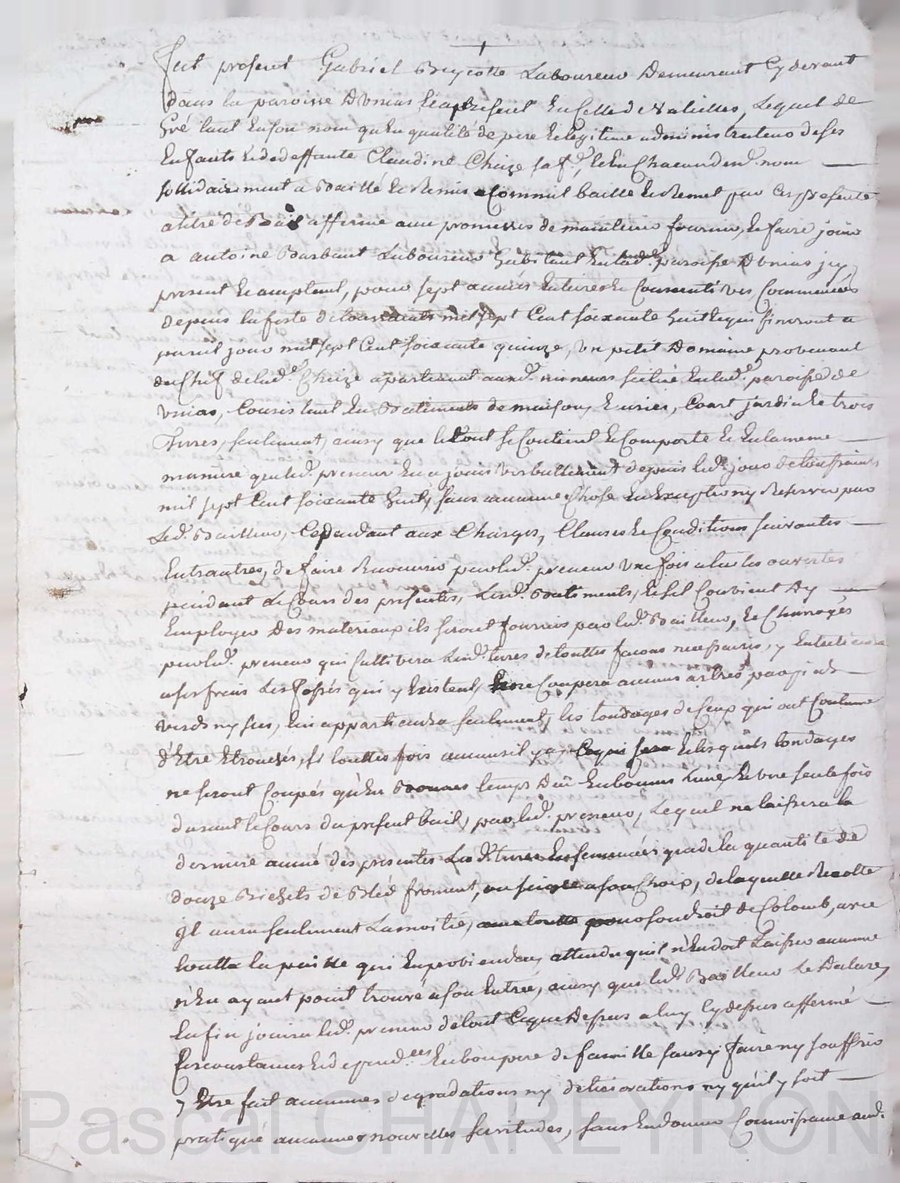 Fut présent Gabriel Laboureur Demeurant Cy devant
dans la paroisse D'unias Et apresent En Celle de Valeilles, Lequel de
Gré tant En son nom qu'En qualité de pere Et legitime administrateur de ses
Enfants Et de deffunte Claudine Chize sa f.e, Et En Chacun desd. nom
sollidairement a Baillé Et Remis Comme il baille Et Remet par Ces presentes
a titre de Bail afferme avec promesse de maintenir fournir, Et faire jouir
a antoine Barbant Laboureur habitant En lad. paroisse D'unias jcy
present Et acceptant, pour sept années Entieres Et Consecutives Commencées
depuis la feste de toussaints mil sept Cent soixante huit Et qui finiront a
pareil jour mil sept Cent soixante quinze, un petit Domaine provenant
du Chef de lad. Chize apartenant auxd. mineurs scitué En lad. paroisse de
Unias, Consistant En Batiments de maison, Ecuries, Court jardin Et trois
Terres, seulement, ainsy que le tout se Contient Et Comporte Et En la meme
maniere que led. preneur En a joui Verballement depuis led. jour de toussaints
mil sept Cent soixante huit, sans aucune Chose En Excepter ny Reserver par
Led. Bailleur, Cependant aux Charges, Clauses Et Conditions suivantes
Entrautres, de faire Recouvrir par led. preneur une fois a tuiles ouvertes
pendant Le Cours des presentes, Lesd. Batiments, Et s'il Convient D'y
Employer Des materiaux ils seront fournis par led. Bailleur, Et Charroyés
par led. preneur qui Cultivera Lesd. terres de touttes façons necessaires, y Entretiendra
a ses frais Les fossés qui y Existent, ne Coupera aucuns arbres par pied
verds ny secs, lui appartiendra seulement, les tondages de Ceux qui ont Coutume
d'Etre Etroussés, si touttes fois aucuns il y a, Et lesquels tondages
ne seront Coupés qu'En Bonnes temps Du En bonne Lune, Et une seule fois
durant le Cours du present bail, par led. preneur, Lequel ne laissera la
derniere année des presentes Lesd. terres Ensemencées que de la quantité de
douze Bichets de Bled froment, ou seigle a son Choix, de laquelle Recolte
jl aura seulement La moitié, pour son droit de Colomb, avec
toutte la paille qui En proviendra, attendu qu'il n'En doit Laisser aucune
n'En ayant point trouvé a son Entrée, ainsy que led. Bailleur Le Declare,
Enfin jouira led. preneur de tout Ce que Dessus a luy Cy dessus affermé
Circonstances Et dependces En bon pere de famille sans y faire ny souffrir
y Etre fait aucunes degradations ny deteriorations ny qu'il y soit
pratiqué aucunes nouvelles servitudes, sans En donner Connoissance aud.
Pascal CHAREYRON